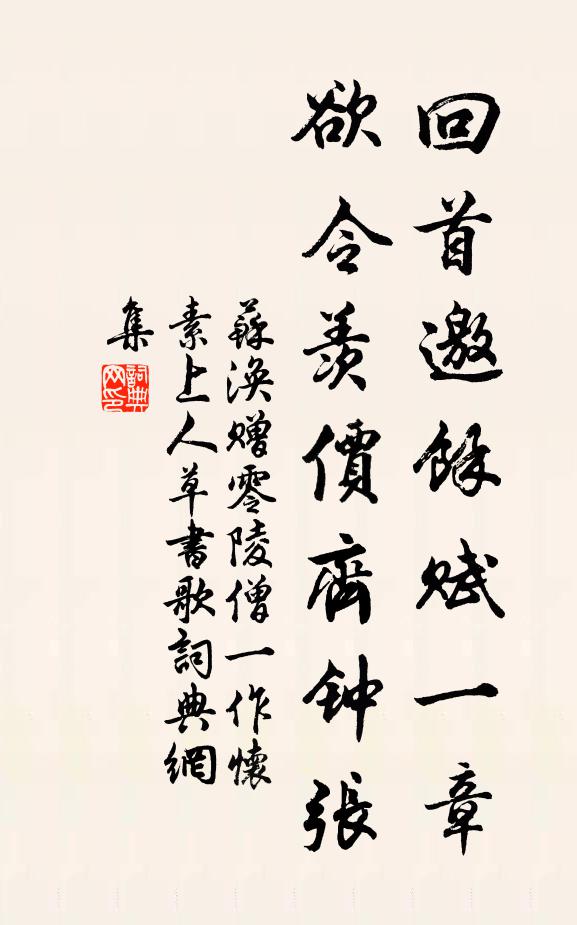 回首邀餘賦一章
欲令羨價齊钟張
蘇渙贈零陵僧一作懷
素上人草書歌詞典網
集
詞典
网印